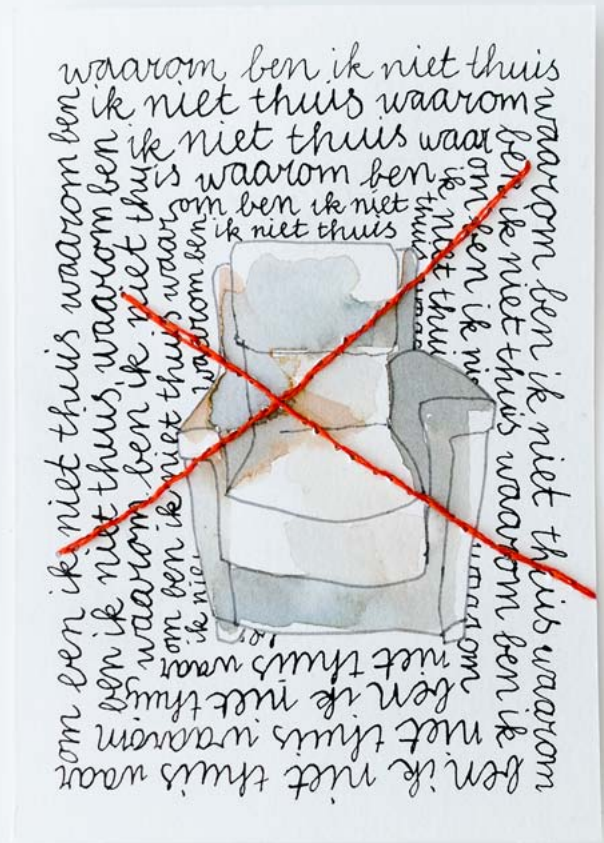 waarom ben ik niet thuis
ik niet thuis waarom
ik niet thuis waar
is waarom ben
om ben ik niet
ik niet thuis
waarom ben ik niet thuis waarom
ben ik niet thuis waarom ben ik
om ben ik ni
waarom
ik niet thui
thuis
ben ik niet thuis waar
niet thuis waarom
ben ik niet thuis
niet thuis waar
om ben ik niet thuis waarom ben
ben ik niet thuis waarom ben
waarom ben ik niet thu
om ben ik niet thuis waar
ik nie
waarom ben